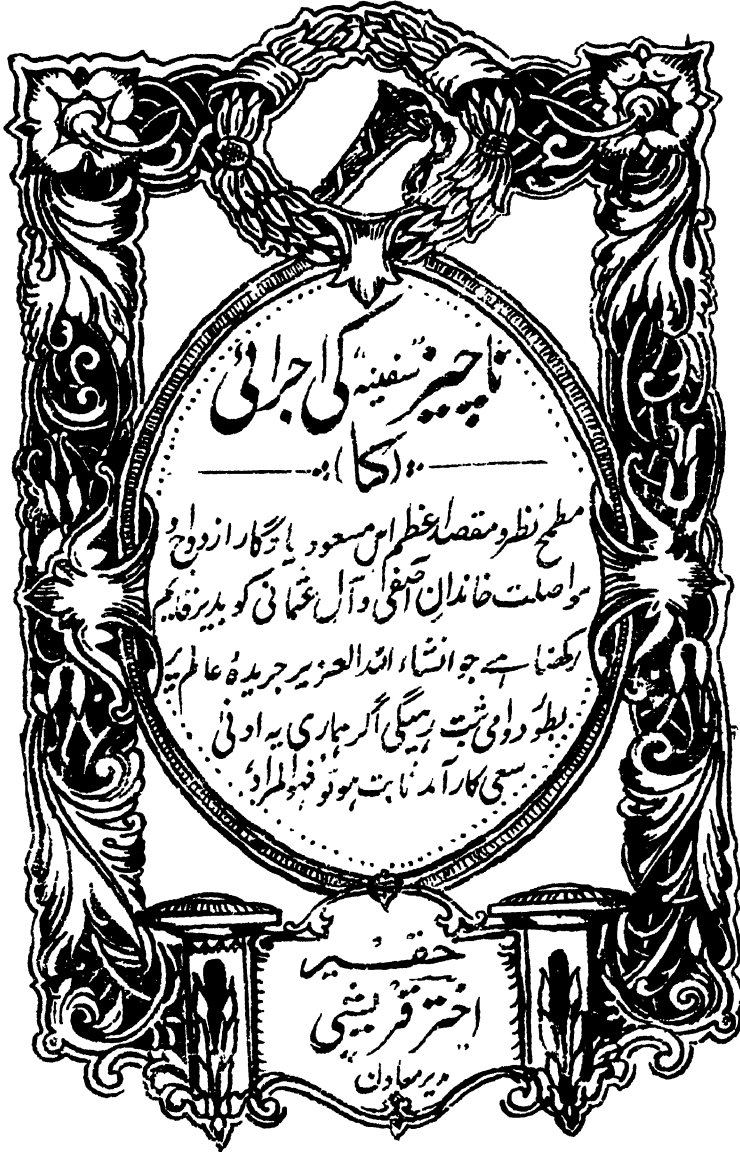 ناچیز "سفینہ" کی اجرائی
(کا)
مطمح نظر و مقصد اعظم اس مسعود یادگار ازدواج و
مواصلت خاندانِ آصفی و آلِ عثمانی کو بدیر قایم
رکھنا ہے جو انشاء اللہ العزیز جریدۂ عالم پر
بطور دوامی ثبت رہیگی اگر ہماری یہ ادنیٰ
سعی کارآمد ثابت ہو تو فہو المراد
حقیر
اختر قریشی
مدیر معاون